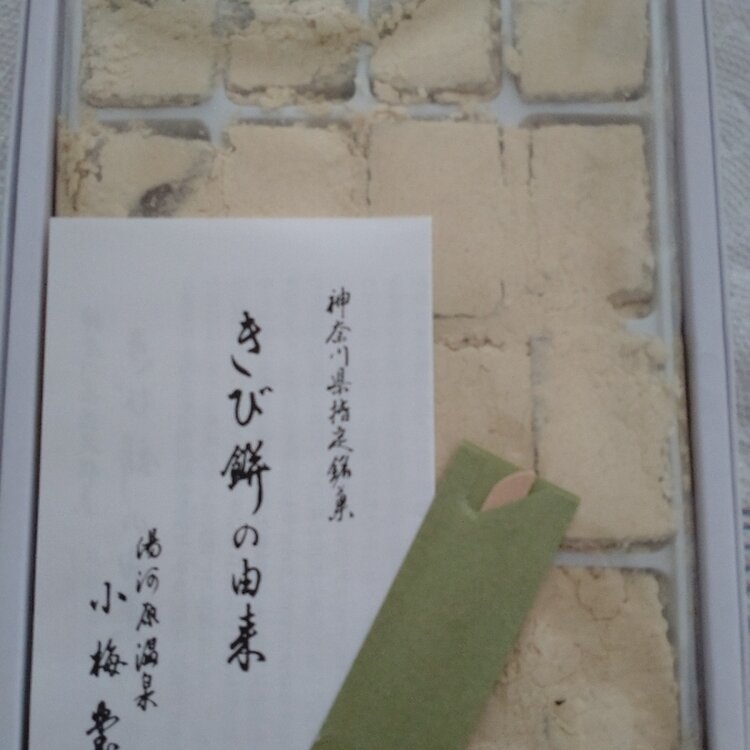 神奈川県指定銘菓
きび餅の由来
湯河原温泉
小梅堂